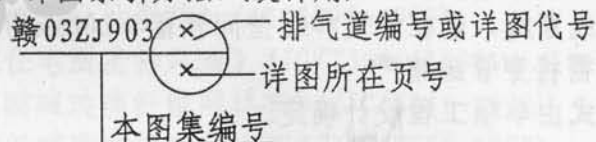 赣03ZJ903 × 排气道编号或详图代号
× 详图所在页号
本图集编号